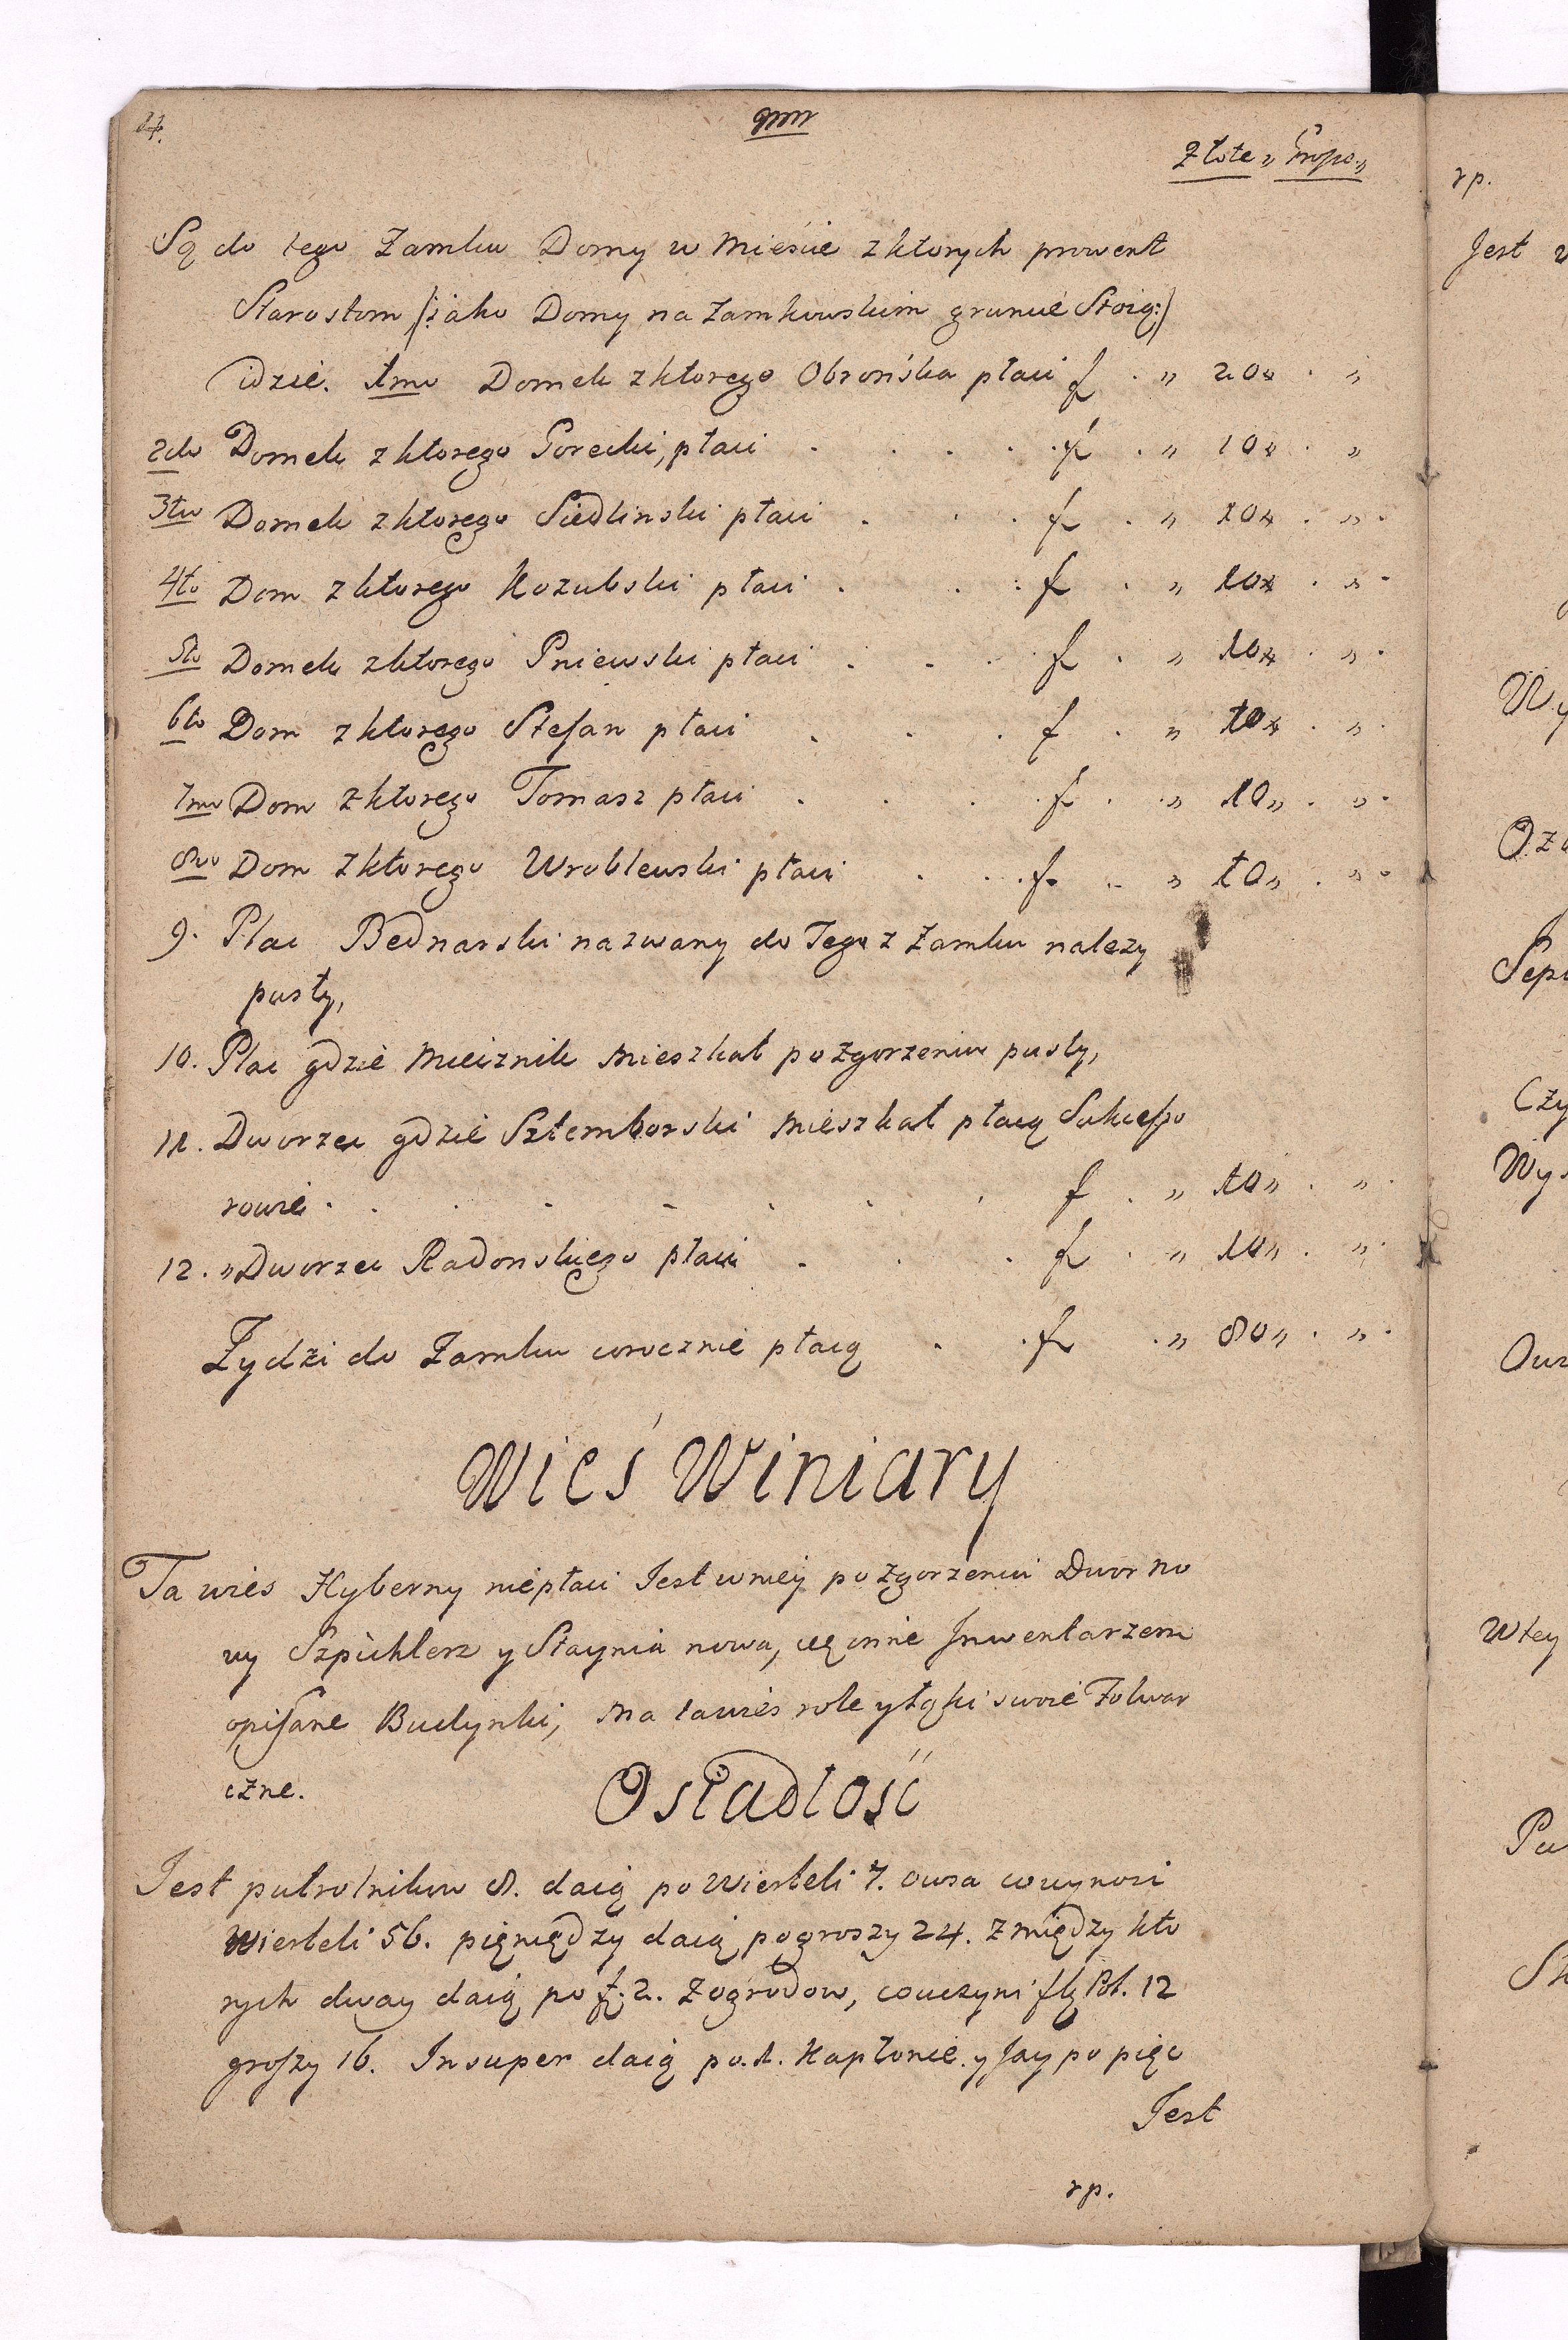 14.
Złote „ Grosze „
Są do tego Zamku Domy w Mieście z ktorych prowent
Starostom (: jako Domy na Zamkowskim gruncie Stoią :)
idzie. 1mo Domek z ktorego Obrońska płaci f . „ 20 „ . „
2do Domek z ktorego Gorecki, płaci . . . . . f . „ 10 „ . „
3tio Domek z ktorego Siedlinski płaci . . . f . „ 10 „ . „ .
4to Dom z ktorego Kozubski płaci . . . f . „ 10 „ . „ .
5to Domek z ktorego Pniewski płaci . . . f . „ 10 „ . „ .
6to Dom z ktorego Stefan płaci . . . f . „ 10 „ . „ .
7mo Dom z ktorego Tomasz płaci . . . . f . „ 10 „ . „ .
8vo Dom z ktorego Wroblewski płaci . . . f . „ 10 „ . „ .
9. Plac Bednarski nazwany do Tego z Zamku nalezy
pusty,
10. Plac gdzie Miecznik Mieszkał po Zgorzeniu pusty,
11. Dworzec gdzie Sztemborski Mieszkał płacą Sukcesso
rowie . . . . . . . f . „ 10 „ . „ .
12. „ Dworzec Radonskiego płaci . . . f . „ 10 „ . „ .
Żydzi do Zamku corocznie płacą . . f . „ 80 „ . „ .
Wieś Winiary
Ta wies Hyberny niepłaci Jest w niey po Zgorzeniu Dwor no
wy Szpichlerz y Staynia nowa, są inne Inwentarzem
opisane Budynki, Ma ta wies role y łąki swoie Folwar
czne.
Osiadłość
Jest putrolnikow 8. daią po Wierteli 7. owsa co wynosi
Wierteli 56. pięniędzy daią po groszy 24. z między kto
rych dway daią po f. 2. z ogrodow, co uczyni flg Pol. 12
groszy 16. Insuper daią po. 1. Kapłonie. y Jay po pięc
Jest
rp.
rp.
Jest